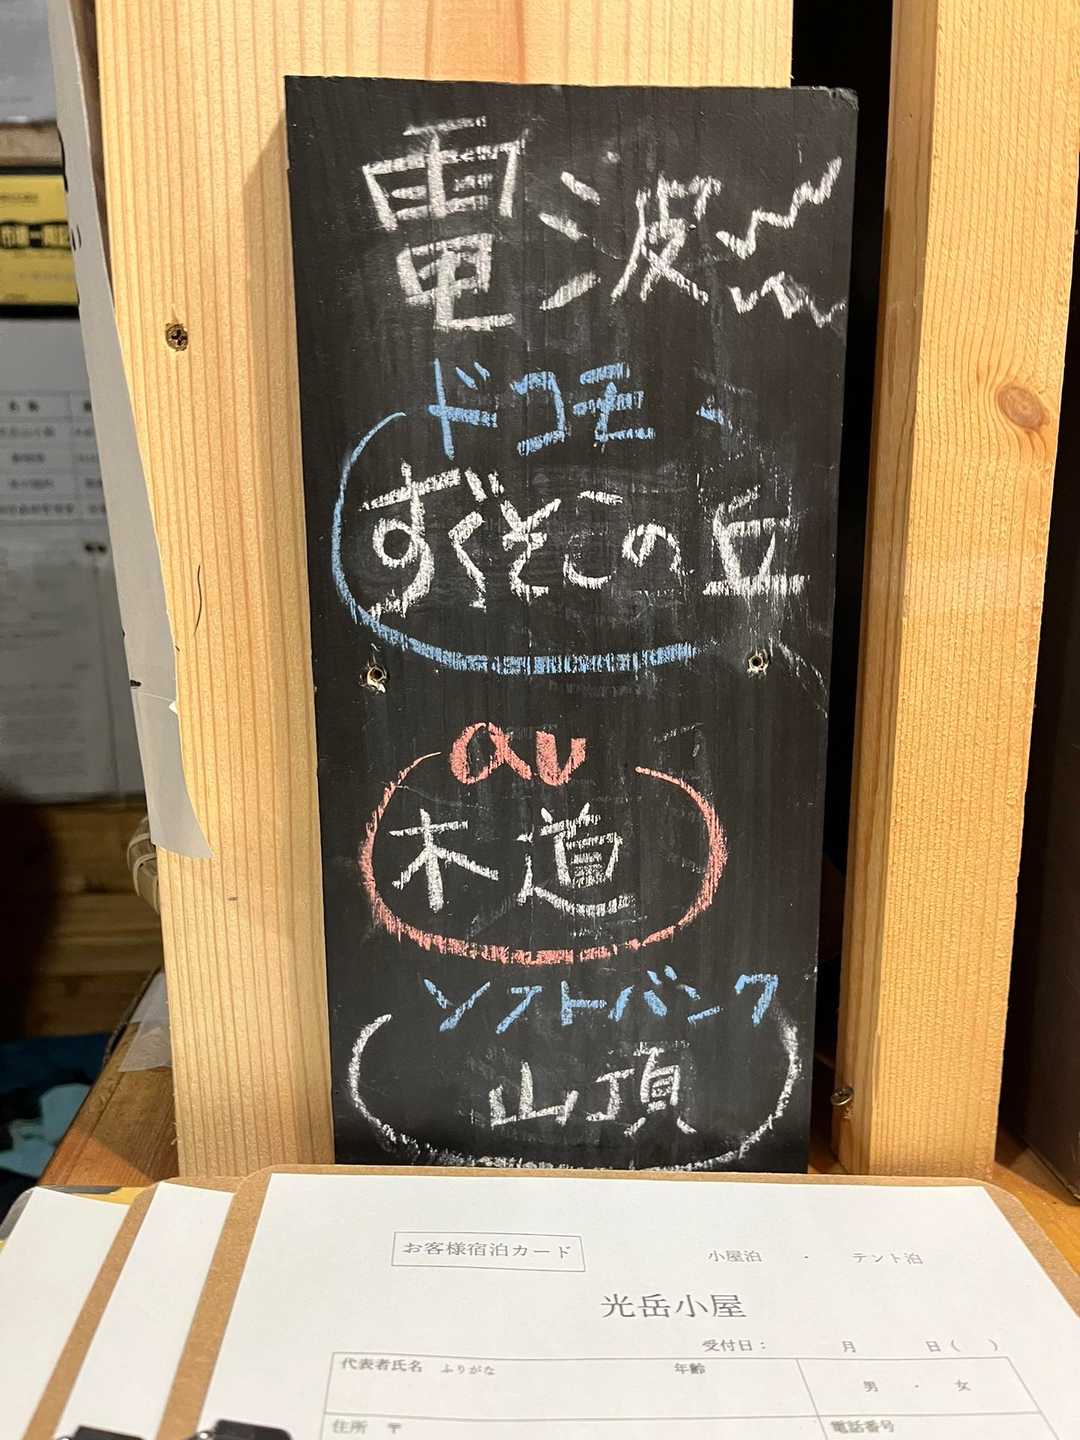 電波
ドコモ
すぐそこの丘
au
木道
ソフトバンク
山頂
お客様宿泊カード
小屋泊 ・ テント泊
光岳小屋
受付日： 月 日（ ）
代表者氏名 ふりがな 年齢
男 ・ 女
住所 〒 電話番号